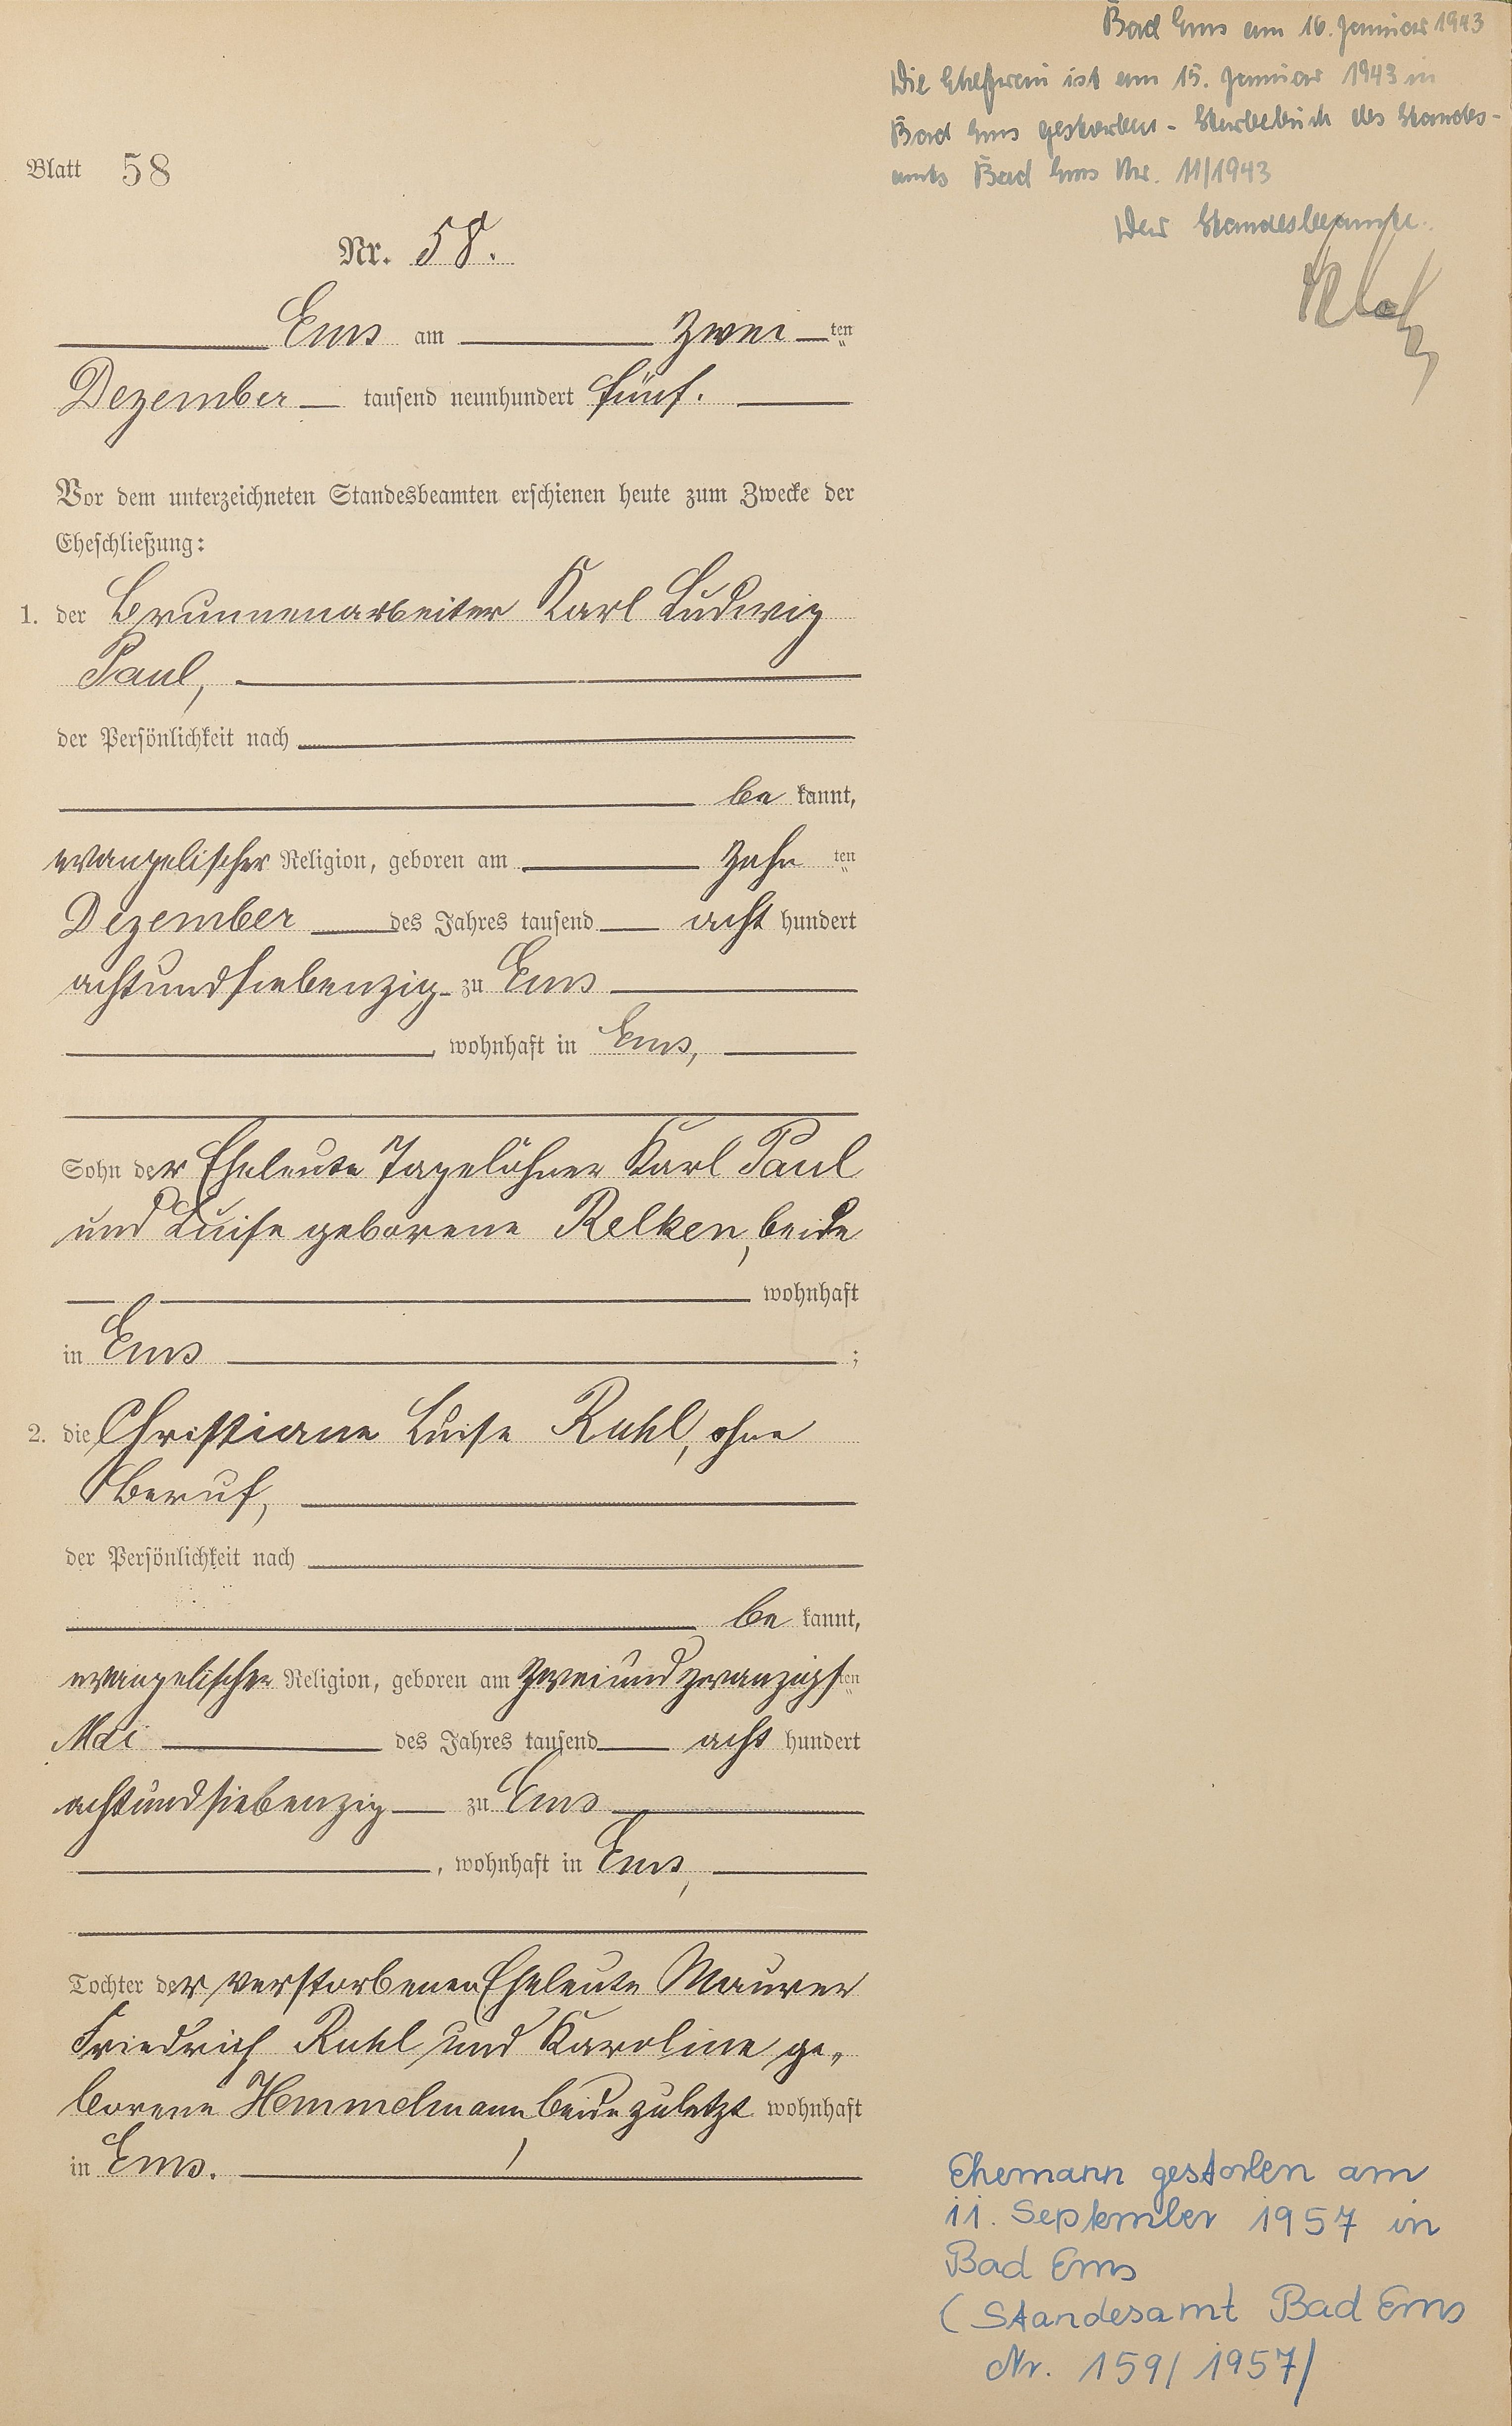 Bad Ems am 16. Januar 1943
Die Ehefrau ist am 15. Januar 1943 in
Bad Ems gestorben - Sterbebuch des Standes-
amts Bad Ems Nr. 11/1943
Der Standesbeamte.
Blatt 58
Nr. 58.
Ems am zwei ten
Dezember tausend neunhundert fünf.
Vor dem unterzeichneten Standesbeamten erschienen heute zum Zwecke der
Eheschließung:
1. der Brunnenarbeiter Karl Ludwig
Paul,
der Persönlichkeit nach
be kannt,
evangelischer Religion, geboren am zehn ten
Dezember des Jahres tausend acht hundert
achtundsiebenzig zu Ems
, wohnhaft in Ems,
Sohn der Eheleute Tagelöhner Karl Paul
und Luise geborene Relken, beide
wohnhaft
in Ems ;
2. die Christiane Luise Ruhl, ohne
Beruf,
der Persönlichkeit nach
be kannt,
evangelischer Religion, geboren am zweiundzwanzigsten
Mai des Jahres tausend acht hundert
achtundsiebenzig zu Ems
, wohnhaft in Ems,
Tochter der verstorbenen Eheleute Maurer
Friedrich Ruhl und Karoline ge-
borene Hemmelmann, beide zuletzt wohnhaft
in Ems.
Ehemann gestorben am
11. September 1957 in
Bad Ems
(Standesamt Bad Ems
Nr. 159/1957/